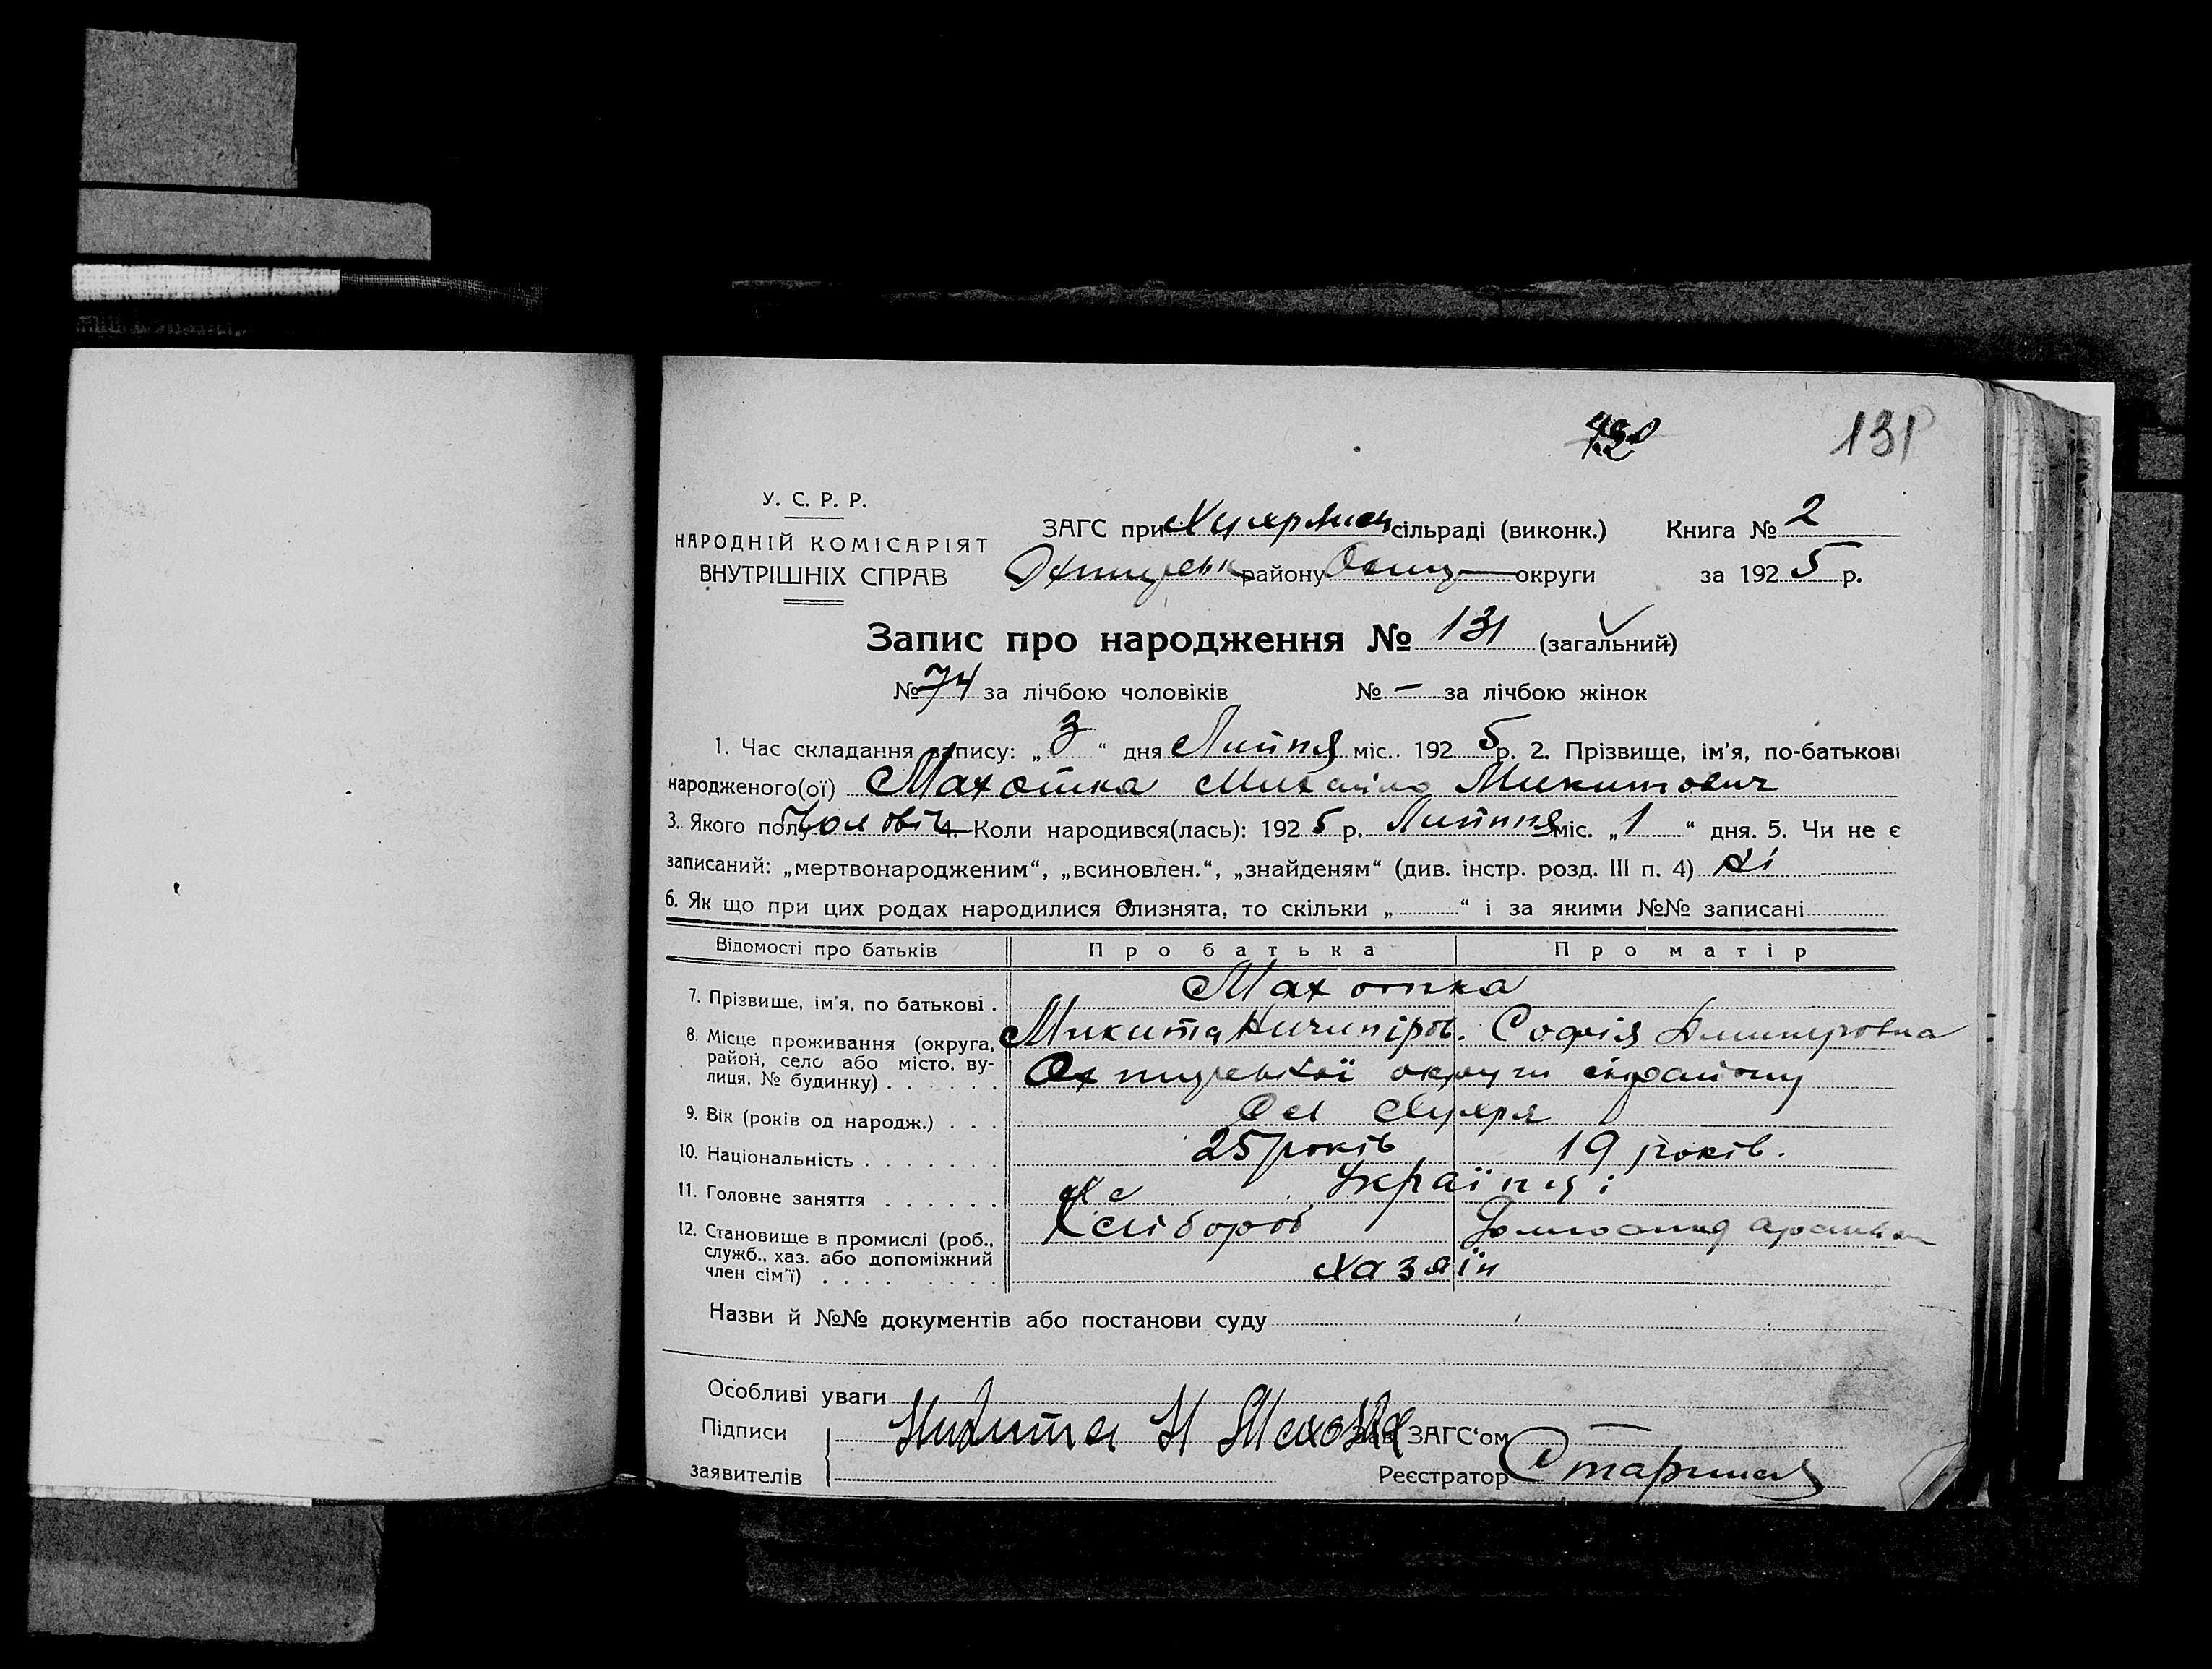 131
У. С. Р. Р.
НАРОДНІЙ КОМІСАРІЯТ
ВНУТРІШНІХ СПРАВ
ЗАГС при сільраді (виконк.) Книга № 2
району округи за 1925 р.
Запис про народження № 131 (загальний)
№ 74 за лічбою чоловіків № — за лічбою жінок
1. Час складання запису: „ 3 “ дня Липня міс. 1925 р. 2. Прізвище, ім'я, по-батькові
народженого(ої) Махотка Михайло Микитович
3. Якого полу Чоловіч 4. Коли народився(лась): 1925 р. Липня міс. „ 1 “ дня. 5. Чи не є
записаний: „мертвонародженим“, „всиновлен.“, „знайденям“ (див. інстр. розд. III п. 4) Ні
6. Як що при цих родах народилися близнята, то скільки „ “ і за якими №№ записані
Відомості про батьків Про батька Про матір
7. Прізвище, ім'я, по батькові . Махотка
8. Місце проживання (округа, район, село або місто, вулиця, № будинку) . . . . . . Микита Ничипіров. Софія Дмитровна
Охтирської округи району
9. Вік (років од народж.) . . . Хухря
10. Національність . . . . . . . 25 років 19 років.
11. Головне заняття . . . . . . Українці
12. Становище в промислі (роб., служб., хаз. або допоміжний член сім'ї) . . . . . . . . Хлібороб
хазяїн
Назви й №№ документів або постанови суду
Особливі уваги
Підписи Никита Н Махотка Зав. ЗАГС'ом
заявителів Реєстратор